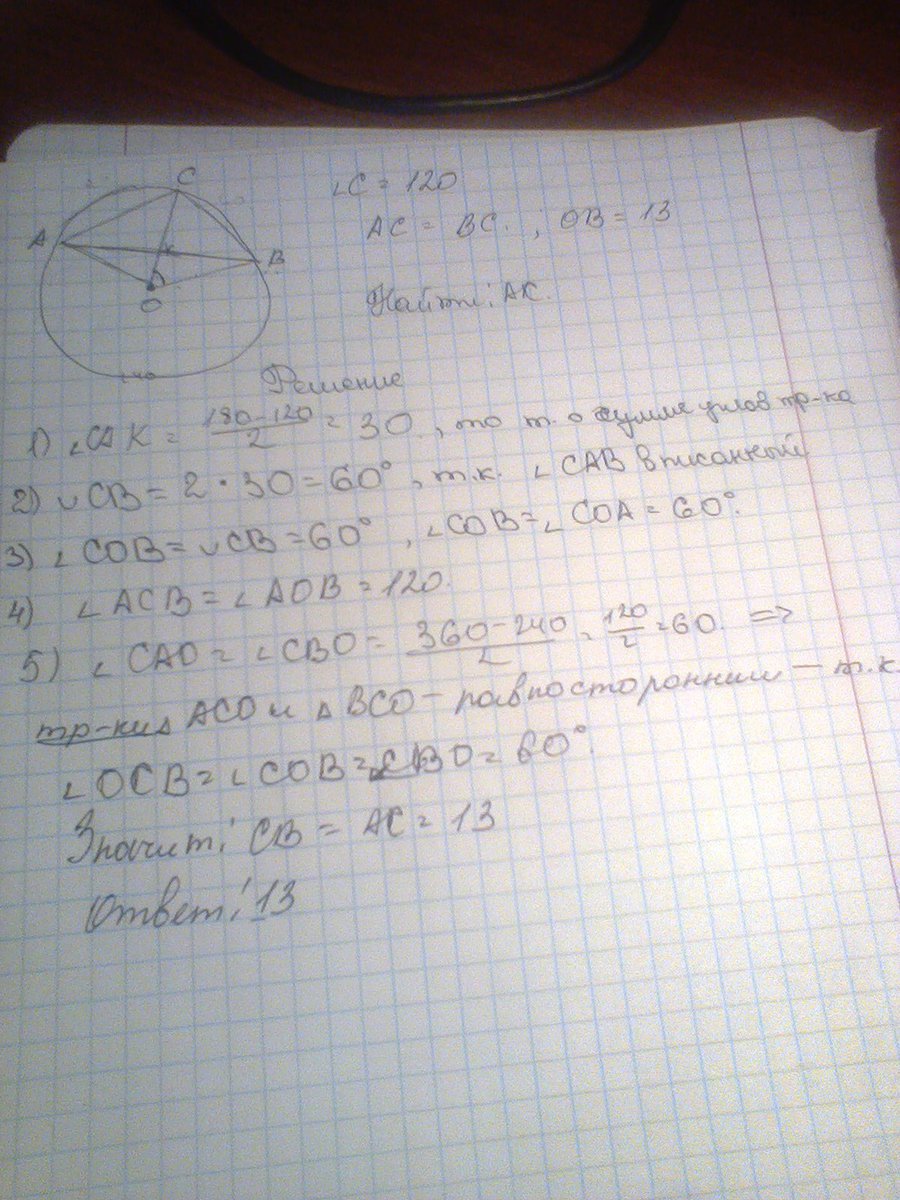 C
A
K
B
O
240
∠C = 120
AC = BC. ; OB = 13
Найти: AC.
Решение
1) ∠CAK = (180-120)/2 = 30, по т. о сумме углов тр-ка
2) ◡CB = 2 · 30 = 60°, т.к. ∠CAB вписанный
3) ∠COB = ◡CB = 60°, ∠COB = ∠COA = 60°.
4) ∠ACB = ∠AOB = 120.
5) ∠CAO = ∠CBO = (360-240)/2 = 120/2 = 60. =>
тр-ки ACO и △BCO - равносторонним — т.к.
∠OCB = ∠COB = ∠CBO = 60°.
Значит: CB = AC = 13
Ответ: 13